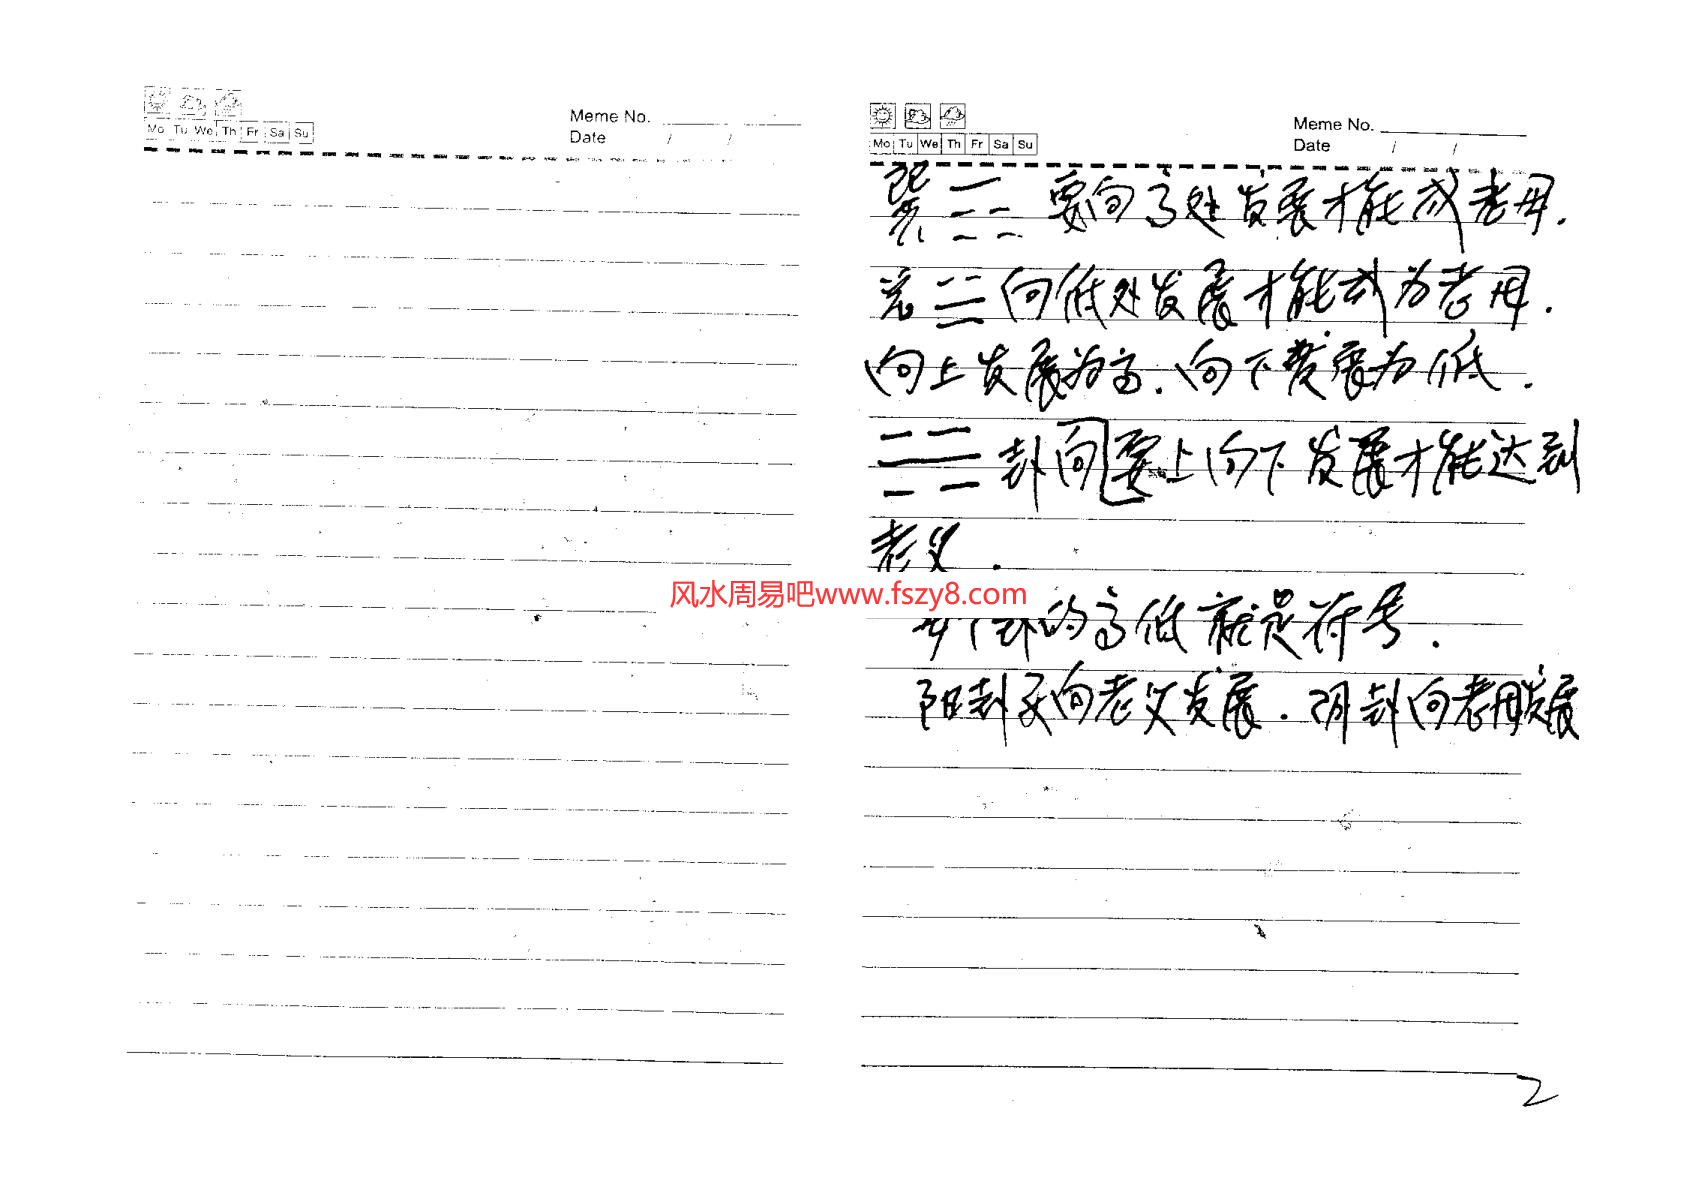 Meme No.
Date / /
Mo Tu We Th Fr Sa Su
Meme No.
Date / /
Mo Tu We Th Fr Sa Su
巽 要向高处发展才能成老母.
兑 ☱ 向低处发展才能成为老母.
向上发展为高.向下发展为低.
☵ 卦向要上向下发展才能达到
老父.
风水周易吧www.fszy8.com
卦的高低就是符号.
阳卦 向老父发展.阴卦向老母发展
2